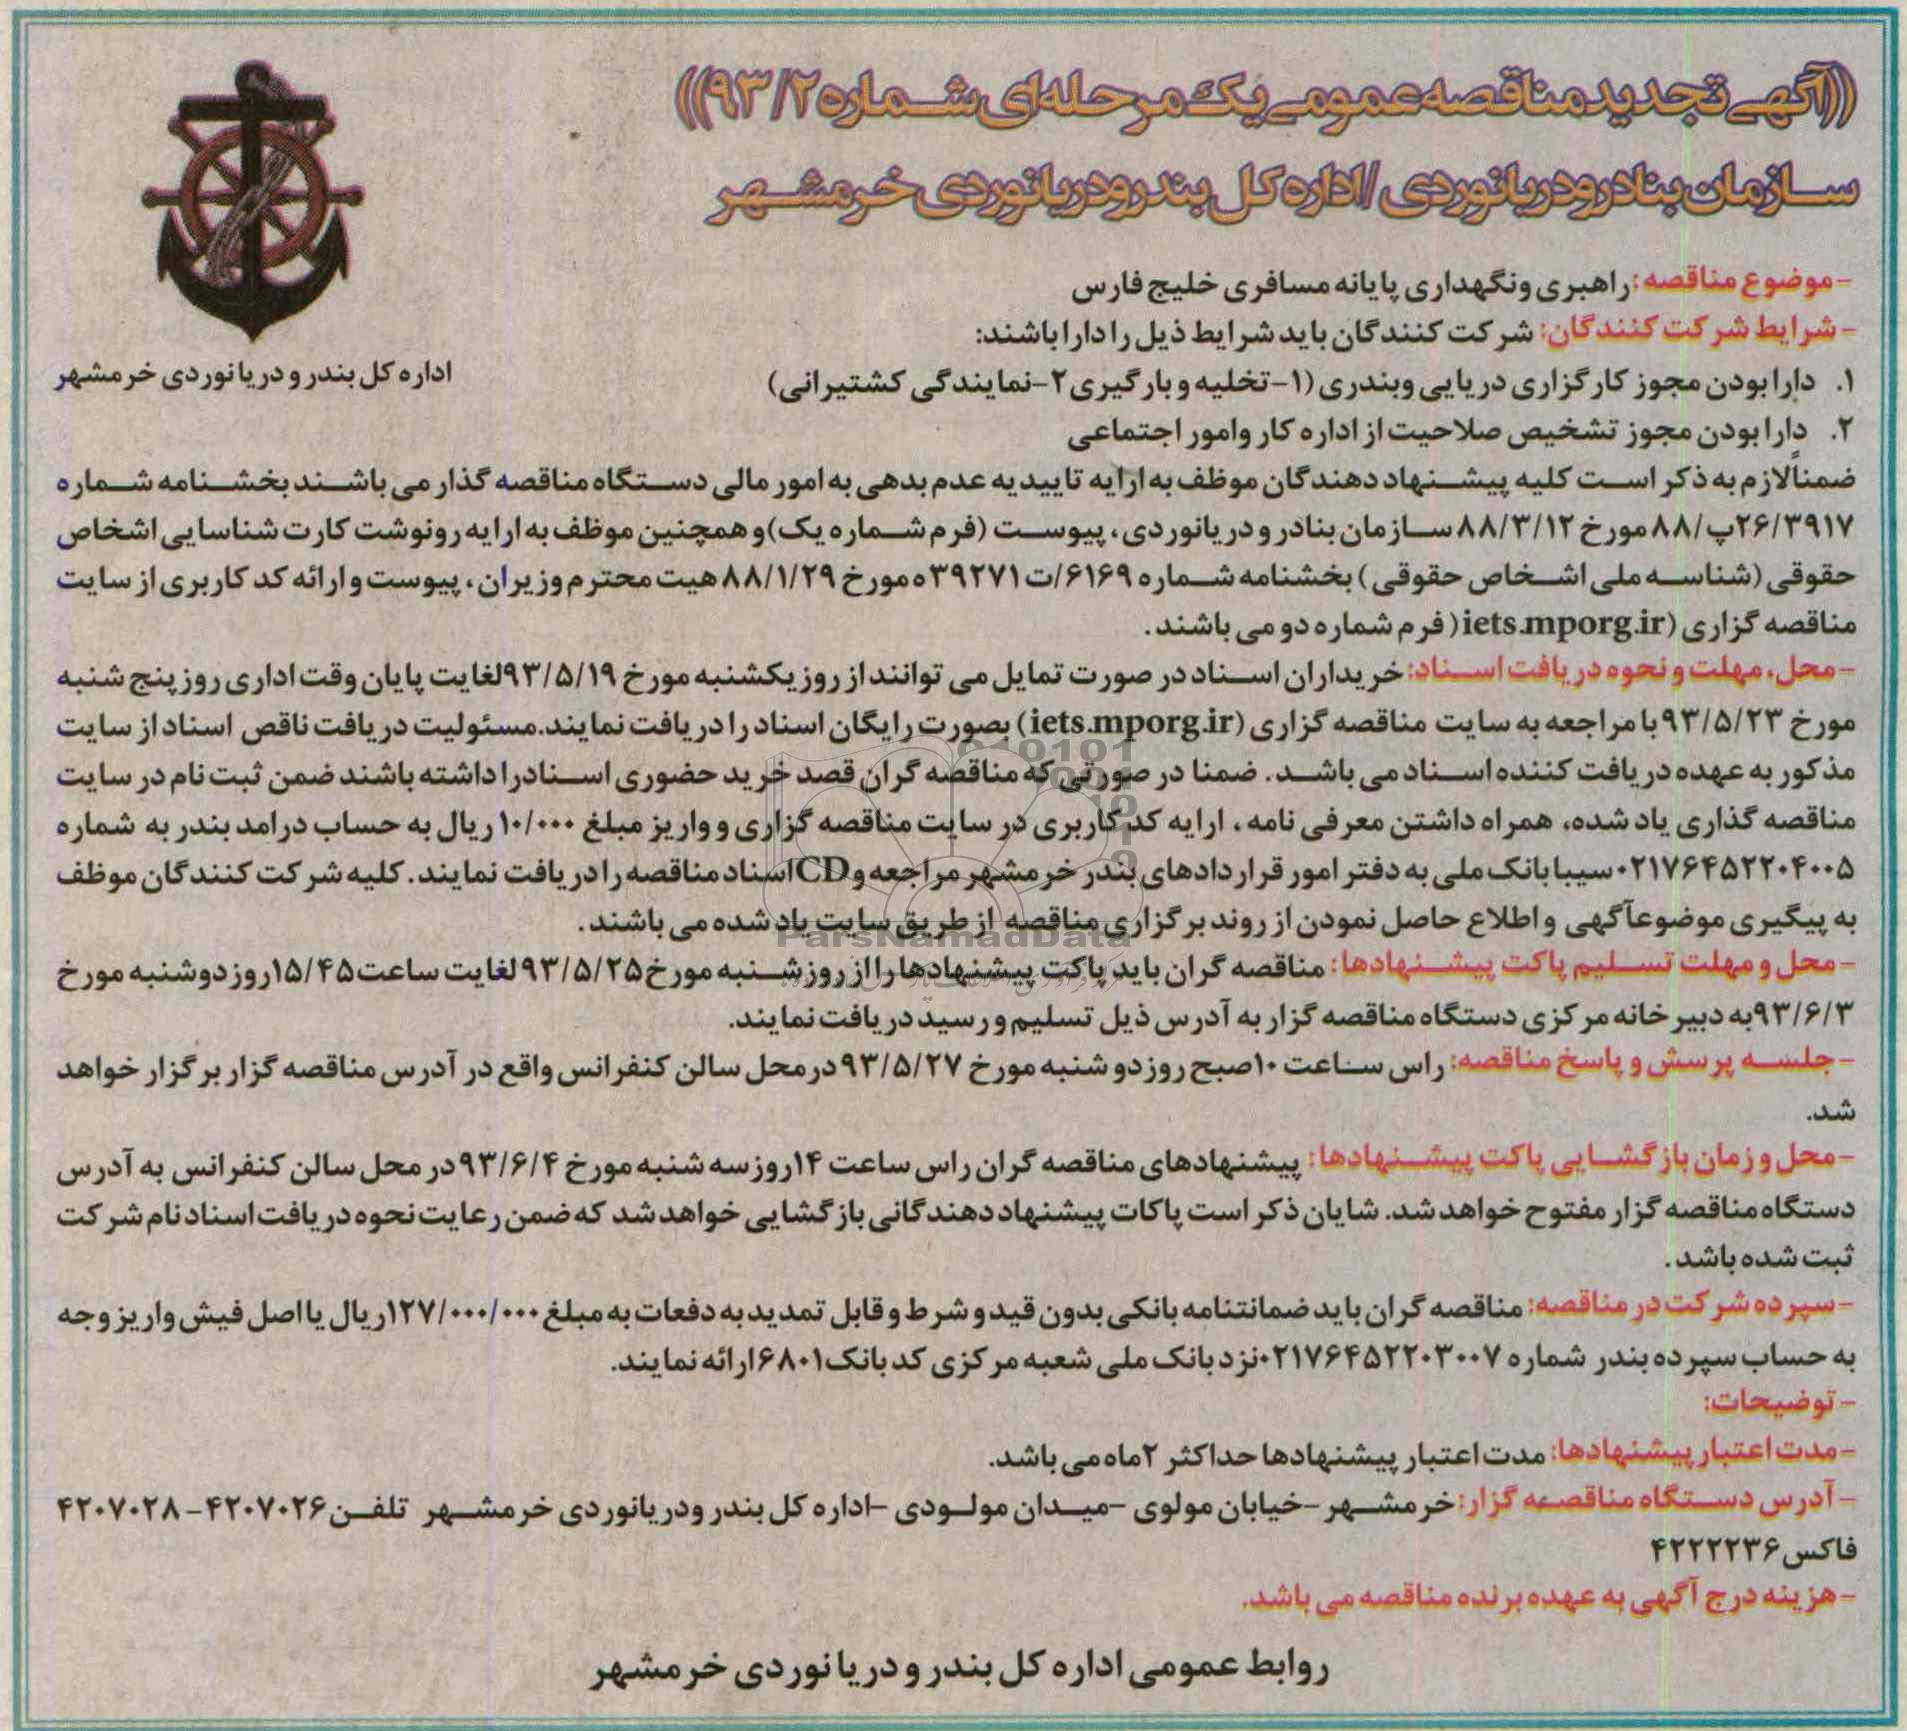 ((آگهی تجدید مناقصه عمومی یک مرحله ای شماره ۹۳/۲))
سازمان بنادر و دریانوردی /اداره کل بندر و دریانوردی خرمشهر
اداره کل بندر و دریانوردی خرمشهر
-موضوع مناقصه: راهبری ونگهداری پایانه مسافری خلیج فارس
-شرایط شرکت کنندگان: شرکت کنندگان باید شرایط ذیل را دارا باشند:
۱. دارا بودن مجوز کارگزاری دریایی وبندری (۱-تخلیه و بارگیری ۲-نمایندگی کشتیرانی)
۲. دارا بودن مجوز تشخیص صلاحیت از اداره کار وامور اجتماعی
ضمناً لازم به ذکر است کلیه پیشنهاد دهندگان موظف به ارایه تاییدیه عدم بدهی به امور مالی دستگاه مناقصه گذار می باشند بخشنامه شماره
۲۶/۳۹۱۷پ/۸۸ مورخ ۸۸/۳/۱۲ سازمان بنادر و دریانوردی، پیوست (فرم شماره یک) و همچنین موظف به ارایه رونوشت کارت شناسایی اشخاص
حقوقی (شناسه ملی اشخاص حقوقی) بخشنامه شماره ۶۱۶۹/ت۳۹۲۷۱ه مورخ ۸۸/۱/۲۹ هیت محترم وزیران، پیوست و ارائه کد کاربری از سایت
مناقصه گزاری (iets.mporg.ir( فرم شماره دو می باشند.
-محل، مهلت و نحوه دریافت اسناد: خریداران اسناد در صورت تمایل می توانند از روز یکشنبه مورخ ۹۳/۵/۱۹لغایت پایان وقت اداری روز پنج شنبه
مورخ ۹۳/۵/۲۳ با مراجعه به سایت مناقصه گزاری (iets.mporg.ir) بصورت رایگان اسناد را دریافت نمایند.مسئولیت دریافت ناقص اسناد از سایت
مذکور به عهده دریافت کننده اسناد می باشد. ضمنا در صورتی که مناقصه گران قصد خرید حضوری اسنادرا داشته باشند ضمن ثبت نام در سایت
مناقصه گذاری یاد شده، همراه داشتن معرفی نامه، ارایه کد کاربری در سایت مناقصه گزاری و واریز مبلغ ۱۰/۰۰۰ ریال به حساب درامد بندر به شماره
۰۲۱۷۶۴۵۲۲۰۴۰۰۵ سیبا بانک ملی به دفتر امور قراردادهای بندر خرمشهر مراجعه و CD اسناد مناقصه را دریافت نمایند. کلیه شرکت کنندگان موظف
به پیگیری موضوعآگهی و اطلاع حاصل نمودن از روند برگزاری مناقصه از طریق سایت یاد شده می باشند.
ParsNamadData
-محل و مهلت تسلیم پاکت پیشنهادها: مناقصه گران باید پاکت پیشنهادها را از روز شنبه مورخ ۹۳/۵/۲۵ لغایت ساعت ۱۵/۴۵روز دوشنبه مورخ
۹۳/۶/۳به دبیرخانه مرکزی دستگاه مناقصه گزار به آدرس ذیل تسلیم و رسید دریافت نمایند.
-جلسه پرسش و پاسخ مناقصه: راس ساعت ۱۰صبح روز دو شنبه مورخ ۹۳/۵/۲۷ درمحل سالن کنفرانس واقع در آدرس مناقصه گزار برگزار خواهد
شد.
-محل و زمان بازگشایی پاکت پیشنهادها: پیشنهادهای مناقصه گران راس ساعت ۱۴روز سه شنبه مورخ ۹۳/۶/۴ در محل سالن کنفرانس به آدرس
دستگاه مناقصه گزار مفتوح خواهد شد. شایان ذکر است پاکات پیشنهاد دهندگانی بازگشایی خواهد شد که ضمن رعایت نحوه دریافت اسناد نام شرکت
ثبت شده باشد.
-سپرده شرکت در مناقصه: مناقصه گران باید ضمانتنامه بانکی بدون قید و شرط و قابل تمدید به دفعات به مبلغ ۱۲۷/۰۰۰/۰۰۰ریال یا اصل فیش واریز وجه
به حساب سپرده بندر شماره ۰۲۱۷۶۴۵۲۲۰۳۰۰۷نزد بانک ملی شعبه مرکزی کد بانک۶۸۰۱ارائه نمایند.
-توضیحات:
-مدت اعتبار پیشنهادها: مدت اعتبار پیشنهادها حداکثر ۲ماه می باشد.
-آدرس دستگاه مناقصه گزار: خرمشهر -خیابان مولوی -میدان مولودی -اداره کل بندر ودریانوردی خرمشهر تلفن۴۲۰۷۰۲۶-۴۲۰۷۰۲۸
فاکس۴۲۲۲۲۳۶
-هزینه درج آگهی به عهده برنده مناقصه می باشد.
روابط عمومی اداره کل بندر و دریانوردی خرمشهر